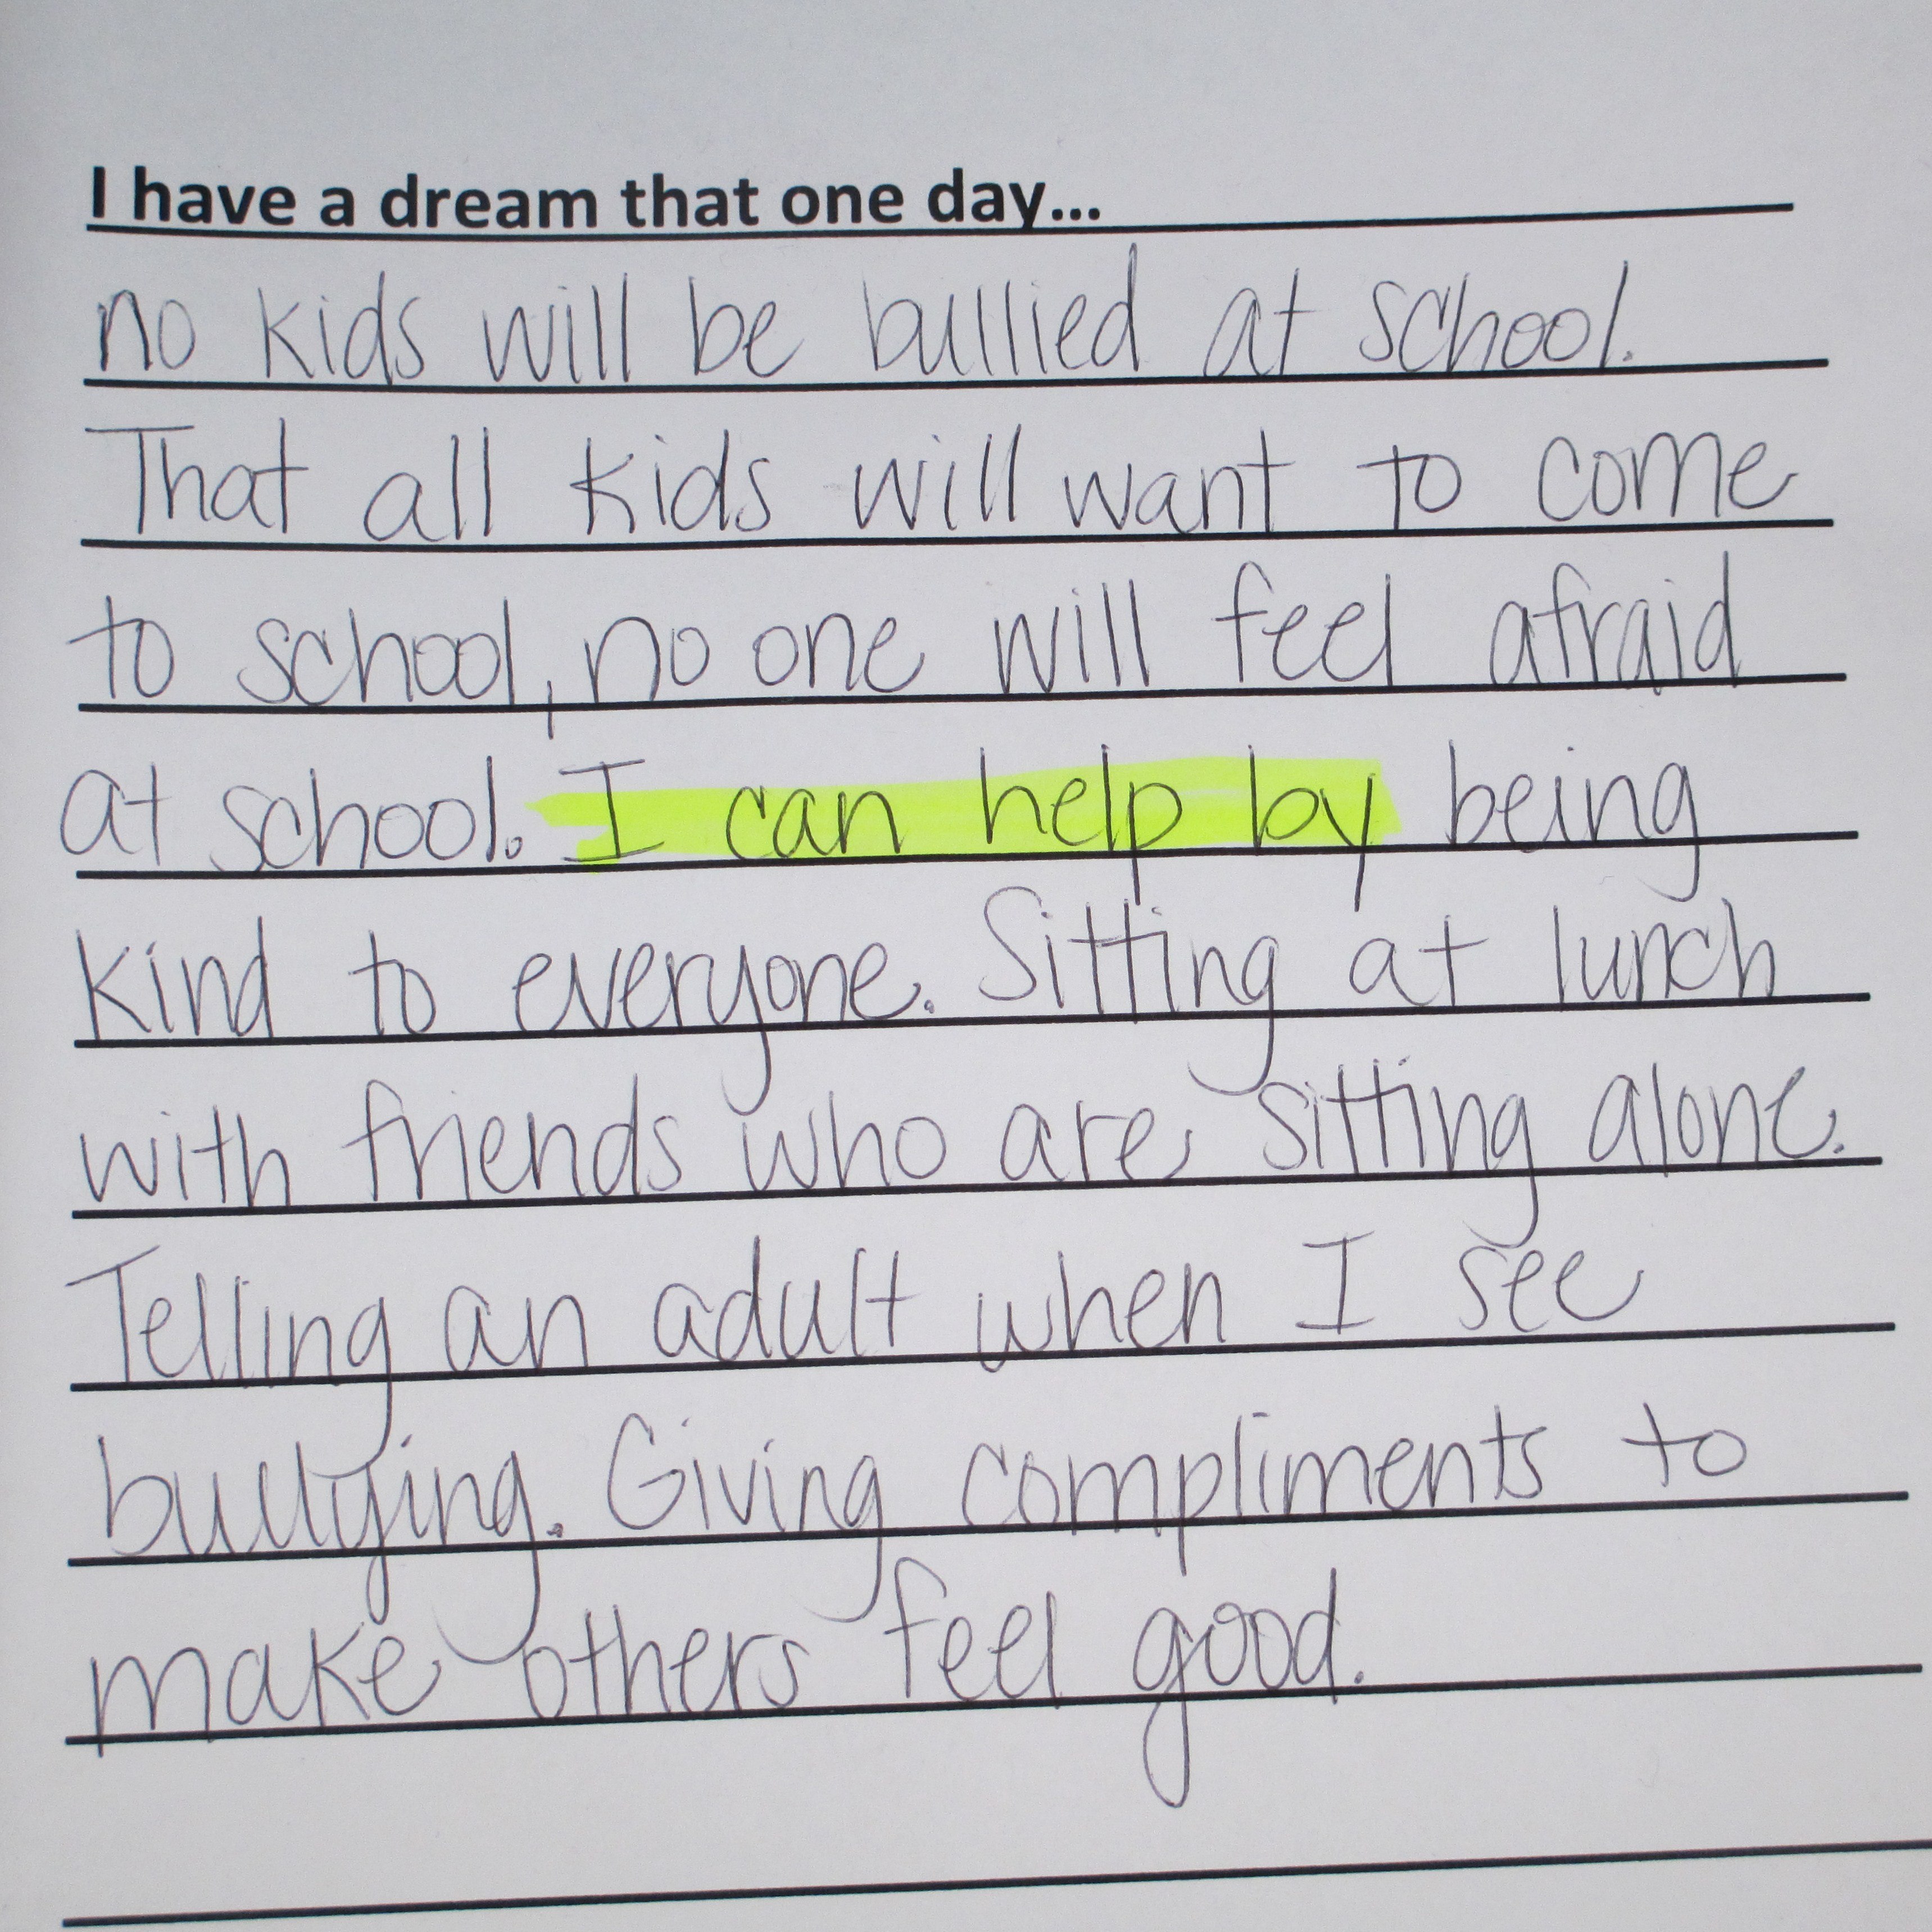 I have a dream that one day...
no kids will be bullied at school.
That all kids will want to come
to school, no one will feel afraid
at school. I can help by being
kind to everyone. Sitting at lunch
with friends who are sitting alone.
Telling an adult when I see
bullying. Giving compliments to
make others feel good.